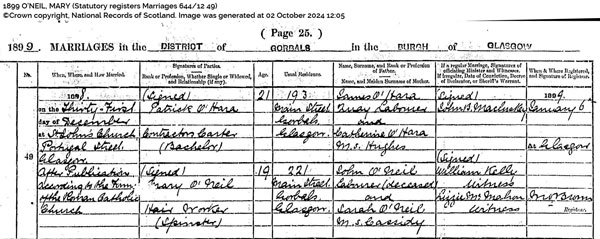 1899 O'NEIL, MARY (Statutory registers Marriages 644/12 49)
©Crown copyright, National Records of Scotland. Image was generated at 02 October 2024 12:05
( Page 25. )
1899. MARRIAGES in the DISTRICT of GORBALS in the BURGH of GLASGOW
No.
When, Where, and How Married.
Signatures of Parties.
Rank or Profession, Whether Single or Widowed, and Relationship (if any).
Age.
Usual Residence.
Name, Surname, and Rank or Profession of Father.
Name, and Maiden Surname of Mother.
If a regular Marriage, Signatures of officiating Minister and Witnesses. If Irregular, Date of Conviction, Decree of Declarator, or Sheriff's Warrant.
When & Where Registered, and Signature of Registrar.
49
1898.
on the Thirty-First
day of December
at St John's Church
Portugal Street
Glasgow
After Publication
according to the Forms
of the Roman Catholic
Church
(Signed)
Patrick O'Hara
Contractors Carter
(Bachelor)
21
193
Main Street
Gorbals
Glasgow
James O'Hara
Quay Labourer
and
Catherine O'Hara
M.S. Hughes
(Signed)
John B.
(Signed)
William Kelly
Witness
Lizzie McMahon
Witness
1899.
January 6
at Glasgow
(Signed)
Mary O'Neil
Hair Worker
(Spinster)
19
221
Main Street
Gorbals
Glasgow
John O'Neil
Labourer (deceased)
and
Sarah O'Neil
M.S. Cassidy
Registrar.